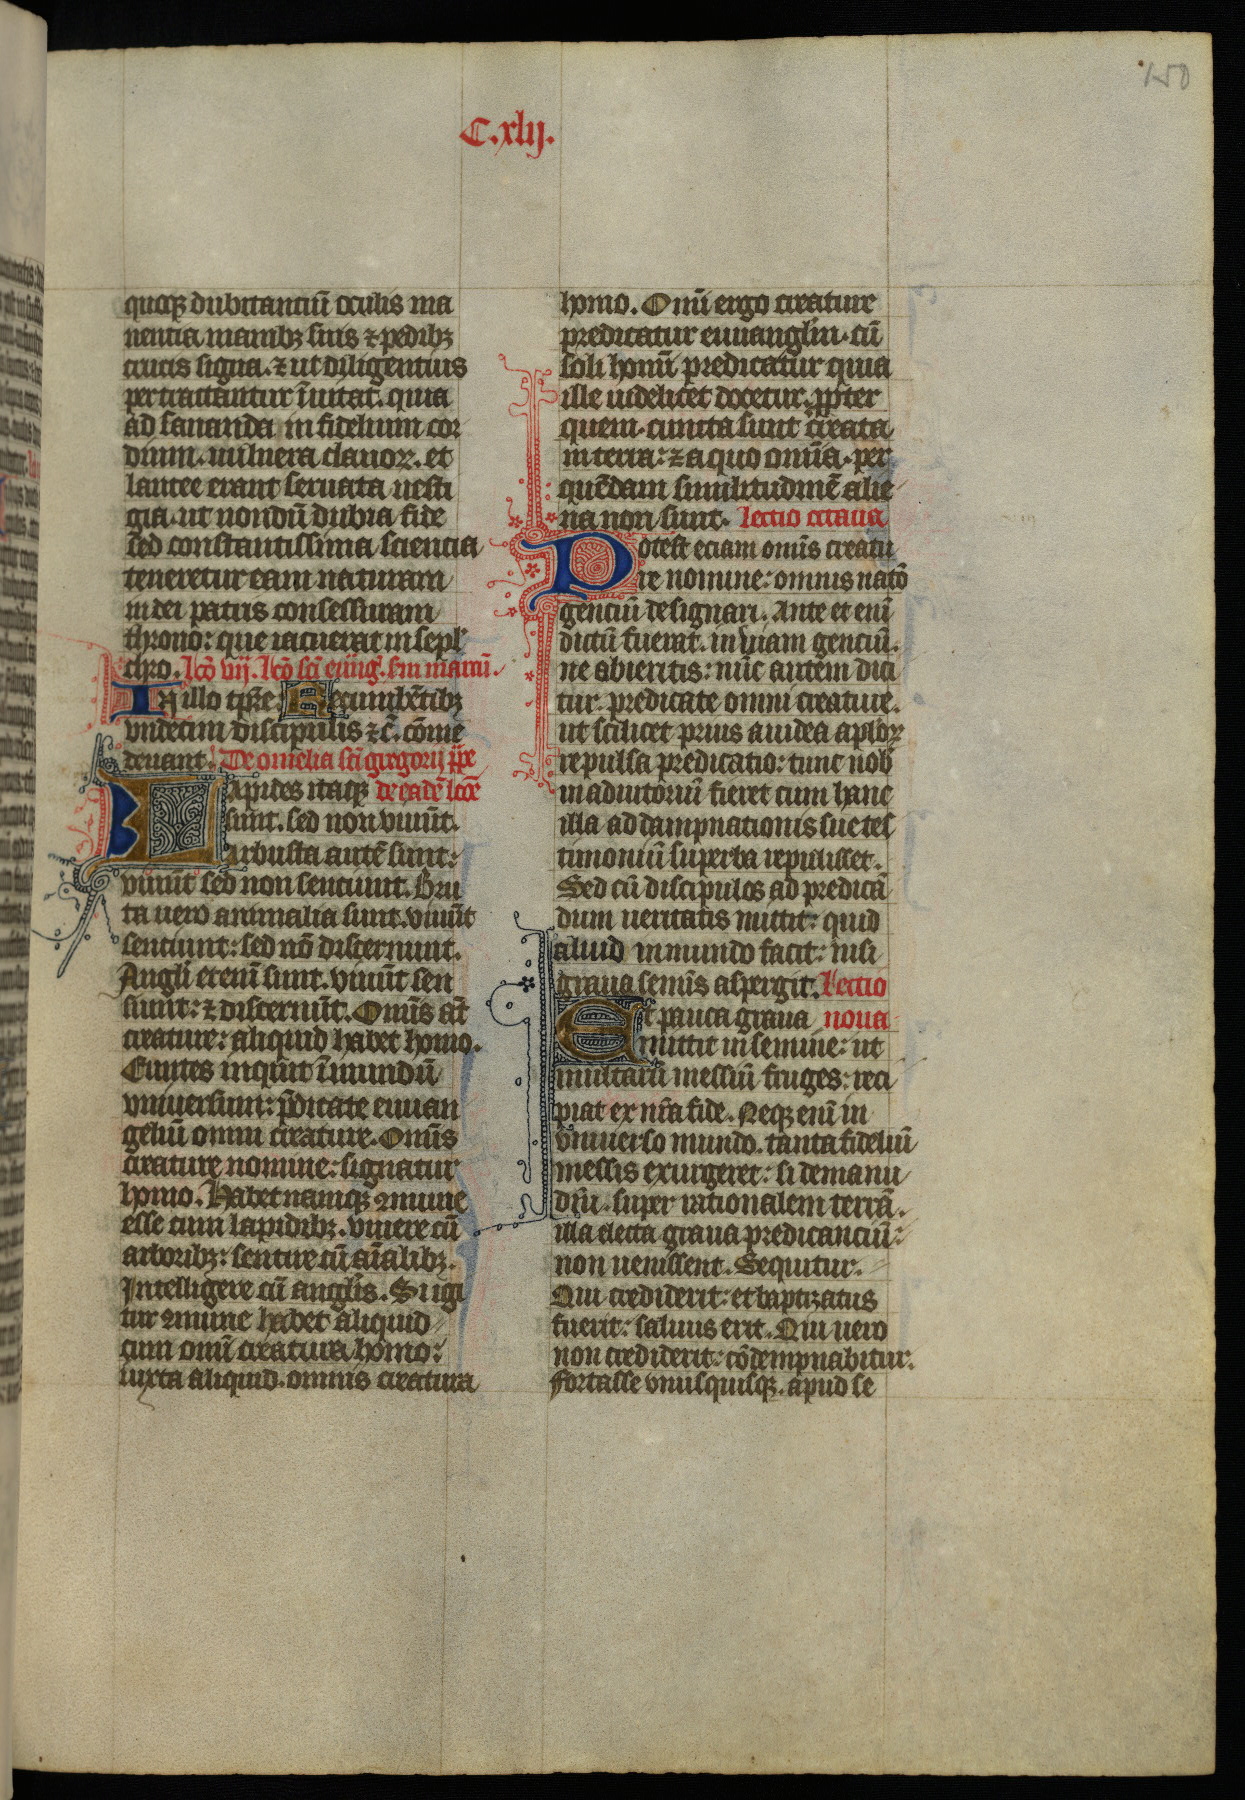 150
C.xlij.
quoq; dubitanciū oculis ma
nentia manib; suis ⁊ pedib;
crucis signa. ⁊ ut diligentius
pertractantur īuitat. quia
ad sananda infidelium cor
dium. uulnera clauoꝝ. et
lancee erant seruata uesti
gia. ut nondū dubia fide
sed constantissima sciencia
teneretur eam naturam
in dei patris consessuram
throno: que iacuerat in sepl
chro. lcō vij. lcō scī euūg. sm marcū.
In illo tp̄re. Recumbētib;
vndecim discipulis ⁊ c̄. cōme
derant. De omelia scī gregorij pp̄e
Lapides itaq; de eadē lcōe
sunt. sed non viuūt.
arbusta autē sunt:
viuūt sed non senciunt. Bru
ta uero animalia sunt. viuūt
senciunt: sed nō discernunt.
Angli etenī sunt. viuūt sen
ciunt: ⁊ discernūt. Omīs aūt
creature: aliquid habet homo.
Euntes inquīt ī mundū
vniuersum: p̄dicate euuan
geliū omni creature. Omīs
creature nomine: signatur
homo. Habet namq; ꝯmune
esse cum lapidib;. viuere cū
arborib;: sentire cū aīalib;.
Intelligere cū anglis. Si igi
tur ꝯmune habet aliquid
cum omī creatura homo:
iuxta aliquid. omnis creatura
homo. Omī ergo creature
predicatur euuangliū. cū
soli homī predicatur quia
ille uidelicet docetur. ꝓpter
quem. cuncta sunt creata
in terra: ⁊ a quo omīa. per
quēdam similitudinē alie
na non sunt. lectio octaua
Potest eciam omīs creatu
re nomine: omnis natō
genciū designari. Ante et enī
dictū fuerat. in viam genciū.
ne abieritis: nūc autem dici
tur. predicate omni creature.
ut scilicet prius a iudea aploꝝ
repulsa predicatio: tunc nob̄
in adiutoriū fieret cum hanc
illa ad dampnationis sue tes
timoniū superba repulisset.
Sed cū discipulos ad predicā
dum ueritatis mittit: quid
aliud in mundo facit: nisi
grana semīs aspergit. Lectio
Et pauca grana nona
mittit in semine: ut
multarū messiū fruges: reci
piat ex nr̄a fide. Neq; enī in
vniuerso mundo. tanta fideliū
messis exurgeret: si de manu
dn̄i. super rationalem terrā.
illa electa grana predicanciū:
non uenissent. Sequitur.
Qui crediderit: et baptizatus
fuerit: saluus erit. Qui uero
non crediderit: cōdempnabitur.
Fortasse vnusquisq;. apud se